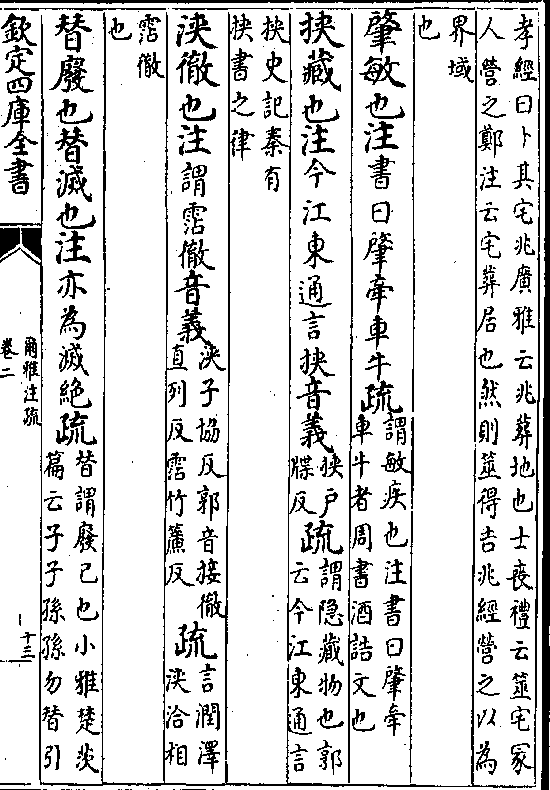 孝經曰卜其宅兆廣雅云兆葬地也士喪禮云筮宅冢
人營之鄭注云宅葬居也然則筮得吉兆經營之以為
界域
也
肇敏也注書曰肇牽車牛疏謂敏疾也注書曰肇牽
車牛者周書酒誥文也
挾藏也注今江東通言挾音義挾戶
牒反疏謂隐藏物也郭
云今江東通言
挾史記秦有
挾書之律
浹徹也注謂霑徹音義浹子協反郭音接徹
直列反霑竹簾反疏言潤澤
浹洽相
霑徹
也
替廢也替滅也注亦為滅絶疏替謂廢已也小雅楚茨
篇云子子孫孫勿替引
欽定四庫全書
爾雅注疏
卷二
十三